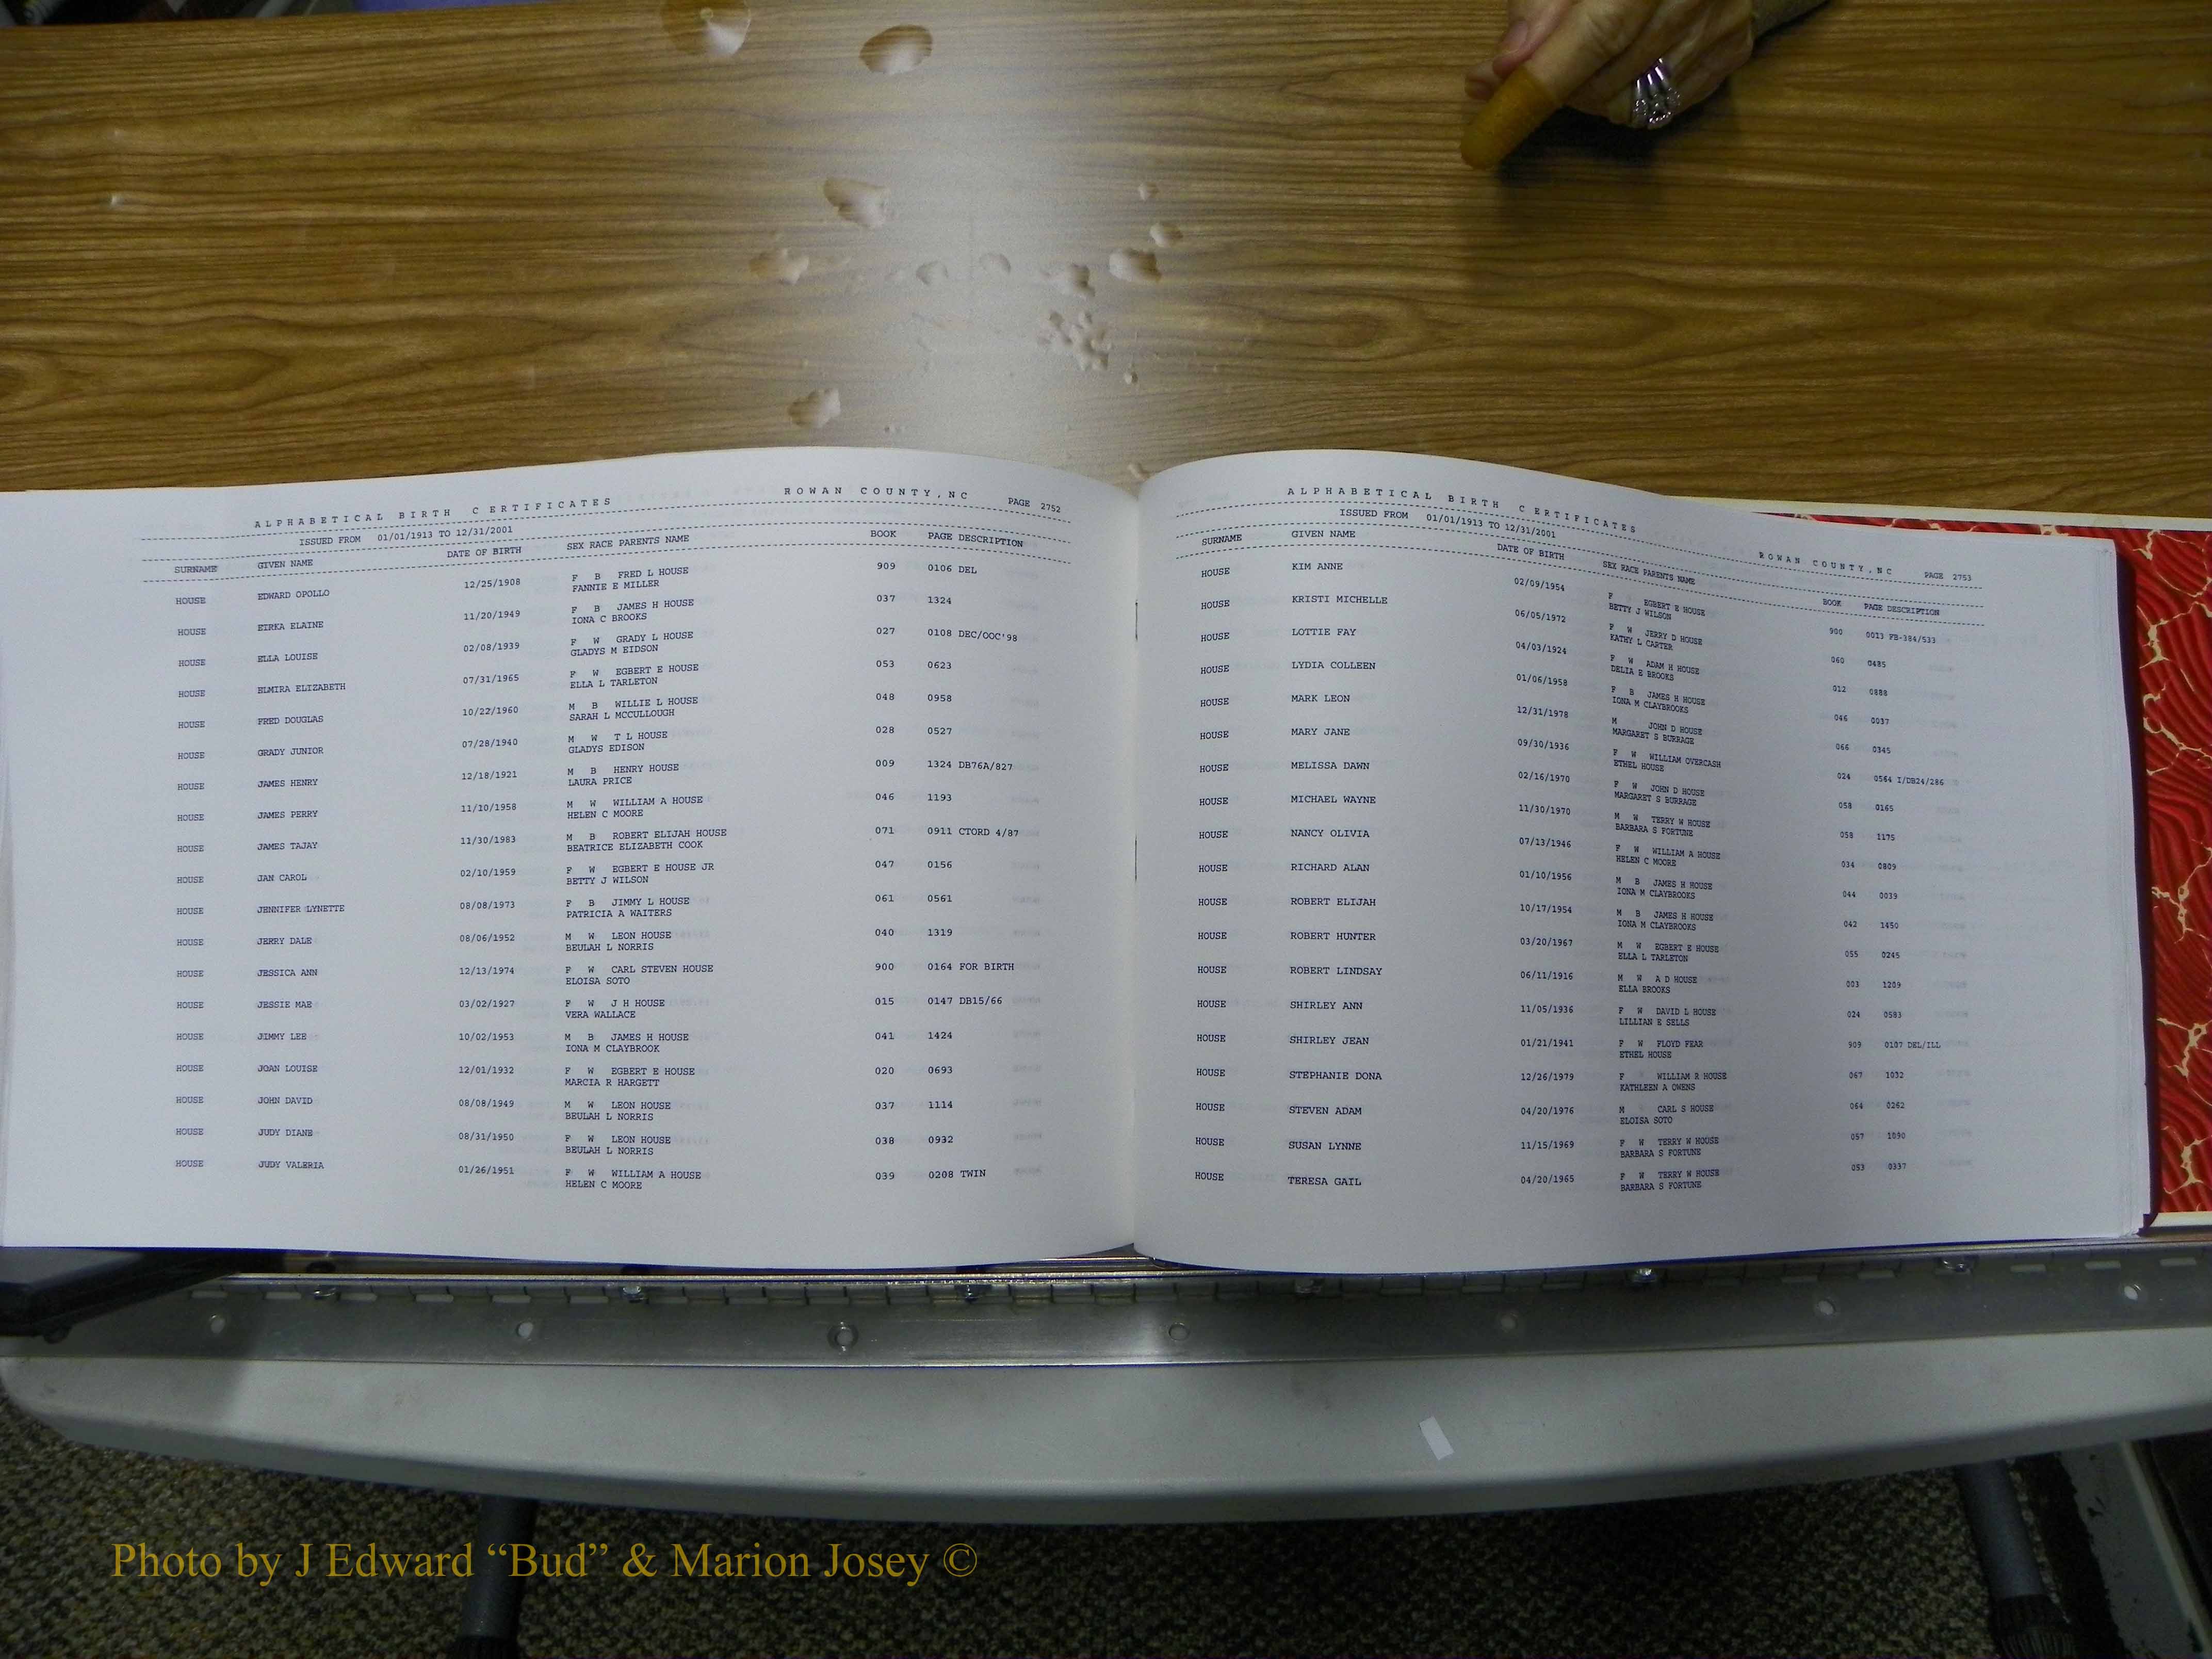 ALPHABETICAL BIRTH CERTIFICATES ROWAN COUNTY,NC PAGE 2752
ISSUED FROM 01/01/1913 TO 12/31/2001
SURNAME GIVEN NAME DATE OF BIRTH SEX RACE PARENTS NAME BOOK PAGE DESCRIPTION
HOUSE EDWARD OPOLLO 12/25/1908 F B FRED L HOUSE 909 0106 DEL
FANNIE E MILLER
HOUSE EIRKA ELAINE 11/20/1949 F B JAMES H HOUSE 037 1324
IONA C BROOKS
HOUSE ELLA LOUISE 02/08/1939 F W GRADY L HOUSE 027 0108 DEC/OOC'98
GLADYS M EIDSON
HOUSE ELMIRA ELIZABETH 07/31/1965 F W EGBERT E HOUSE 053 0623
ELLA L TARLETON
HOUSE FRED DOUGLAS 10/22/1960 M B WILLIE L HOUSE 048 0958
SARAH L MCCULLOUGH
HOUSE GRADY JUNIOR 07/28/1940 M W T L HOUSE 028 0527
GLADYS EDISON
HOUSE JAMES HENRY 12/18/1921 M B HENRY HOUSE 009 1324 DB76A/827
LAURA PRICE
HOUSE JAMES PERRY 11/10/1958 M W WILLIAM A HOUSE 046 1193
HELEN C MOORE
HOUSE JAMES TAJAY 11/30/1983 M B ROBERT ELIJAH HOUSE 071 0911 CTORD 4/87
BEATRICE ELIZABETH COOK
HOUSE JAN CAROL 02/10/1959 F W EGBERT E HOUSE JR 047 0156
BETTY J WILSON
HOUSE JENNIFER LYNETTE 08/08/1973 F B JIMMY L HOUSE 061 0561
PATRICIA A WAITERS
HOUSE JERRY DALE 08/06/1952 M W LEON HOUSE 040 1319
BEULAH L NORRIS
HOUSE JESSICA ANN 12/13/1974 F W CARL STEVEN HOUSE 900 0164 FOR BIRTH
ELOISA SOTO
HOUSE JESSIE MAE 03/02/1927 F W J H HOUSE 015 0147 DB15/66
VERA WALLACE
HOUSE JIMMY LEE 10/02/1953 M B JAMES H HOUSE 041 1424
IONA M CLAYBROOK
HOUSE JOAN LOUISE 12/01/1932 F W EGBERT E HOUSE 020 0693
MARCIA R HARGETT
HOUSE JOHN DAVID 08/08/1949 M W LEON HOUSE 037 1114
BEULAH L NORRIS
HOUSE JUDY DIANE 08/31/1950 F W LEON HOUSE 038 0932
BEULAH L NORRIS
HOUSE JUDY VALERIA 01/26/1951 F W WILLIAM A HOUSE 039 0208 TWIN
HELEN C MOORE
ALPHABETICAL BIRTH CERTIFICATES ROWAN COUNTY,NC PAGE 2753
ISSUED FROM 01/01/1913 TO 12/31/2001
SURNAME GIVEN NAME DATE OF BIRTH SEX RACE PARENTS NAME BOOK PAGE DESCRIPTION
HOUSE KIM ANNE 02/09/1954 F EGBERT E HOUSE 900 0013 FB-384/533
BETTY J WILSON
HOUSE KRISTI MICHELLE 06/05/1972 F W JERRY D HOUSE 060 0485
KATHY L CARTER
HOUSE LOTTIE FAY 04/03/1924 F W ADAM H HOUSE 012 0888
DELIA E BROOKS
HOUSE LYDIA COLLEEN 01/06/1958 F B JAMES H HOUSE 046 0037
IONA M CLAYBROOKS
HOUSE MARK LEON 12/31/1978 M JOHN D HOUSE 066 0345
MARGARET S BURRAGE
HOUSE MARY JANE 09/30/1936 F W WILLIAM OVERCASH 024 0564 I/DB24/286
ETHEL HOUSE
HOUSE MELISSA DAWN 02/16/1970 F W JOHN D HOUSE 058 0165
MARGARET S BURRAGE
HOUSE MICHAEL WAYNE 11/30/1970 M W TERRY W HOUSE 058 1175
BARBARA S FORTUNE
HOUSE NANCY OLIVIA 07/13/1946 F W WILLIAM A HOUSE 034 0809
HELEN C MOORE
HOUSE RICHARD ALAN 01/10/1956 M B JAMES H HOUSE 044 0039
IONA M CLAYBROOKS
HOUSE ROBERT ELIJAH 10/17/1954 M B JAMES H HOUSE 042 1450
IONA M CLAYBROOKS
HOUSE ROBERT HUNTER 03/20/1967 M W EGBERT E HOUSE 055 0245
ELLA L TARLETON
HOUSE ROBERT LINDSAY 06/11/1916 M W A D HOUSE 003 1209
ELLA BROOKS
HOUSE SHIRLEY ANN 11/05/1936 F W DAVID L HOUSE 024 0583
LILLIAN E SELLS
HOUSE SHIRLEY JEAN 01/21/1941 F W FLOYD FEAR 909 0107 DEL/ILL
ETHEL HOUSE
HOUSE STEPHANIE DONA 12/26/1979 F WILLIAM R HOUSE 067 1032
KATHLEEN A OWENS
HOUSE STEVEN ADAM 04/20/1976 M CARL S HOUSE 064 0262
ELOISA SOTO
HOUSE SUSAN LYNNE 11/15/1969 F W TERRY W HOUSE 057 1090
BARBARA S FORTUNE
HOUSE TERESA GAIL 04/20/1965 F W TERRY W HOUSE 053 0337
BARBARA S FORTUNE
Photo by J Edward “Bud” & Marion Josey ©